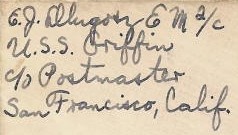 E. J. Dlugosz E M 2/c
U. S. S. Griffin
c/o Postmaster
San Francisco, Calif.